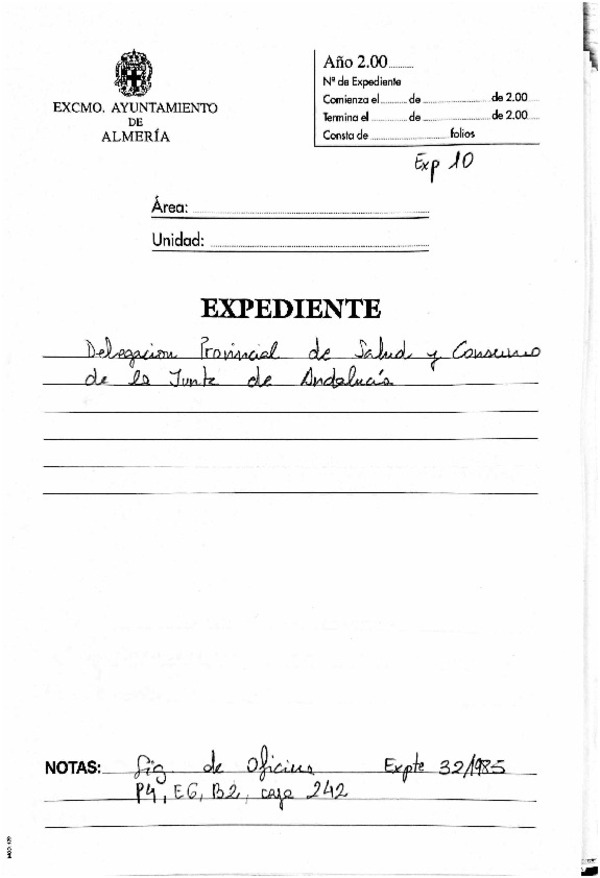 EXCMO. AYUNTAMIENTO
DE
ALMERÍA
Año 2.00
Nº de Expediente
Comienza el de de 2.00
Termina el de de 2.00
Consta de folios
Exp 10
Área:
Unidad:
EXPEDIENTE
Delegacion Provincial de Salud y Consumo
de la Junta de Andalucía
NOTAS: Sig de Oficina Expte 32/1985
P4, E6, B2, caja 242